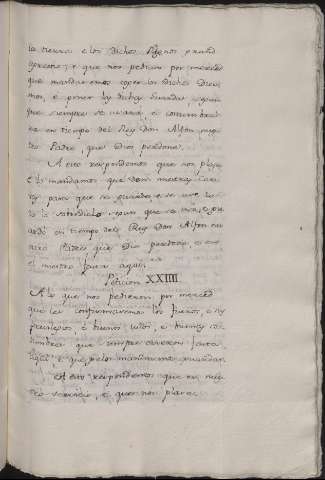 la tierra e los dichos
apresto; e que nos pedian por merced
que mandasemos coger los dichos Diez
mos, é poner los dichos segun
que siempre se usara, é costumbra
ra en tiempo del Rey Don Alfon nues
tro Padre, que Dios perdone.
A esto respondemos que nos place
é les mandamos que den nuestras car
tas para que se guarde, e se use
lo sobredicho segun que se usó, e gu
ardó en tiempo del Rey Don Alfon nu
estro Padre que Dios perdone, e en
el nuestro fasta aqui.
Peticion XXIIII
A lo que nos pedieron por merced
que les confirmasemos los fueros, e pri
vilegios, é buenos usos, e buenas cos
tumbres que siempre ovieron fasta
aqui, e que gelos mandasemos guardar.
A esto respondemos que es nues
tro servicio, e que nos place.